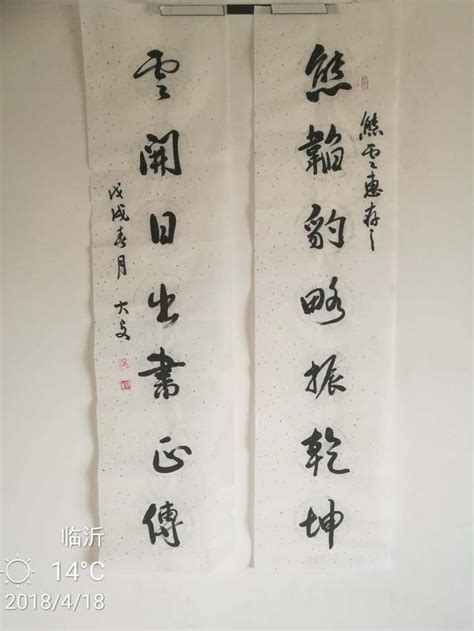 熊韜豹略振乾坤
熊雲惠存之
雲開日出書正傳
戊戌春月 大文
临沂
14°C
2018/4/18